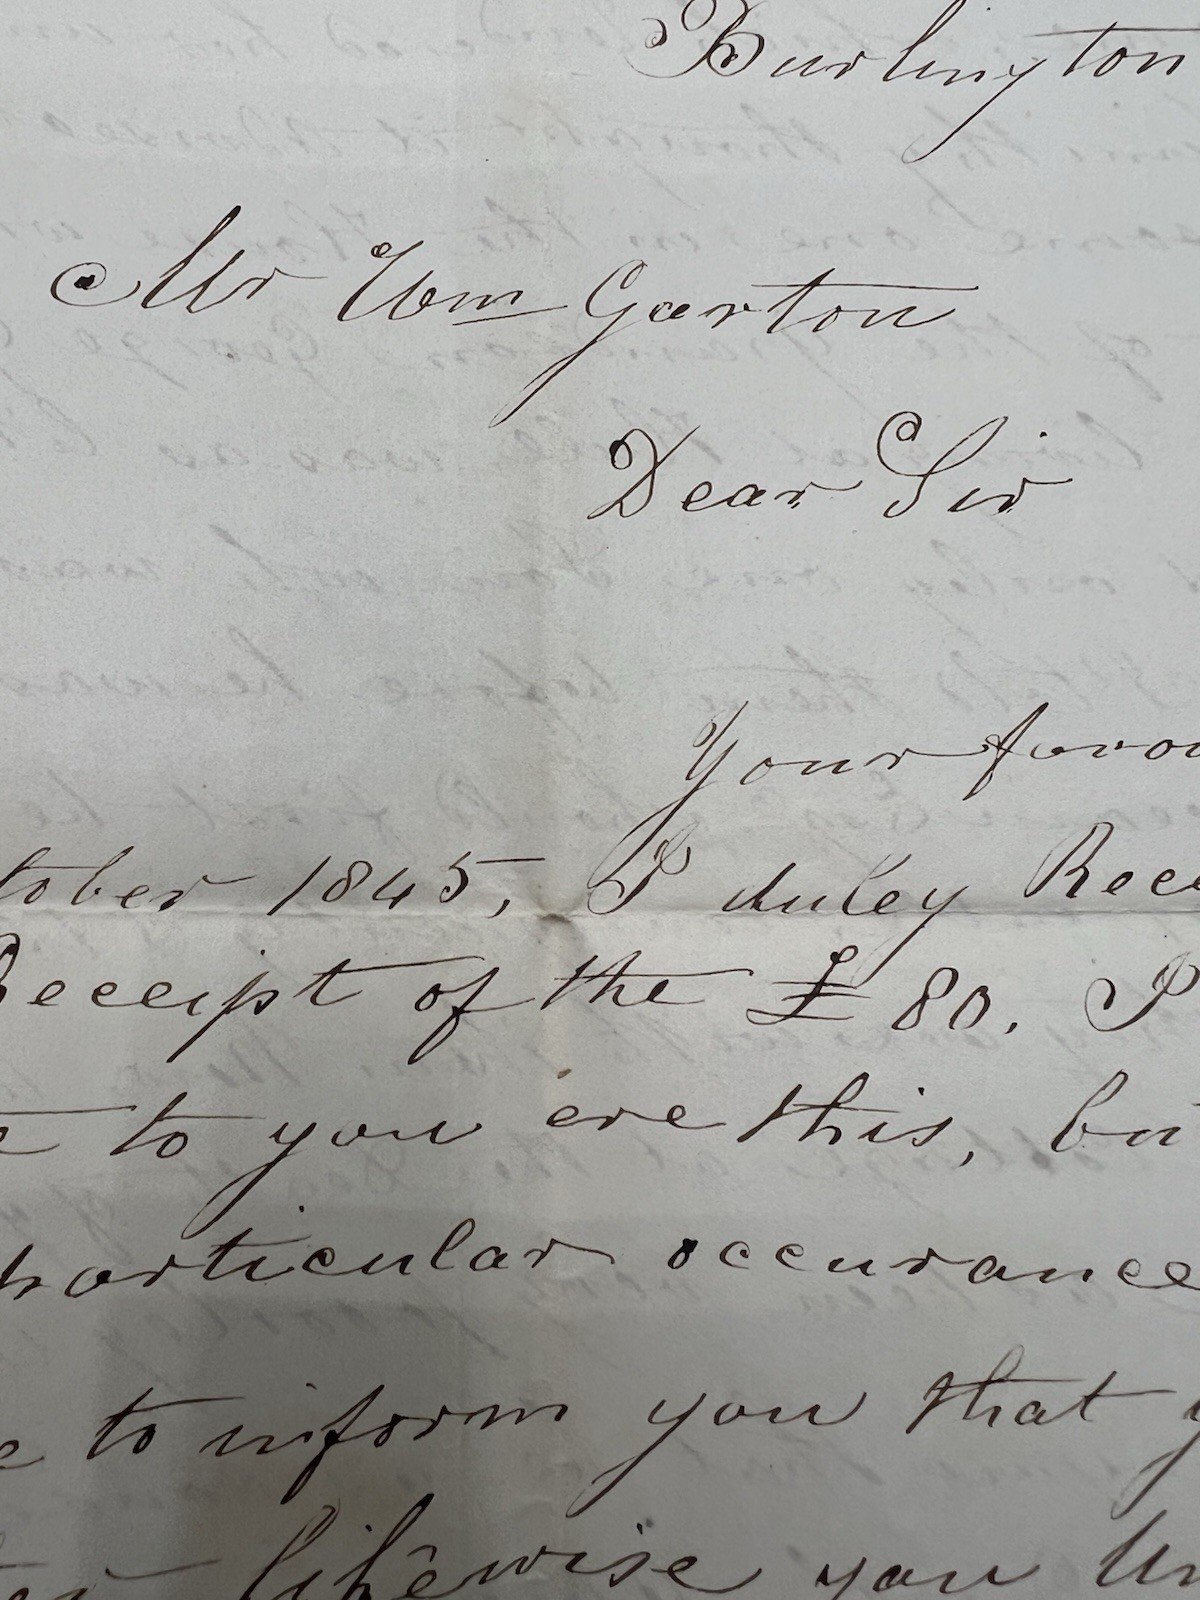 Burlington
Mr Wm Garton
Dear Sir
Your favou
tober 1845, I duley Rece
Receipt of the £ 80. I
e to you ere this, bu
particular occurance
e to inform you that y
likewise you